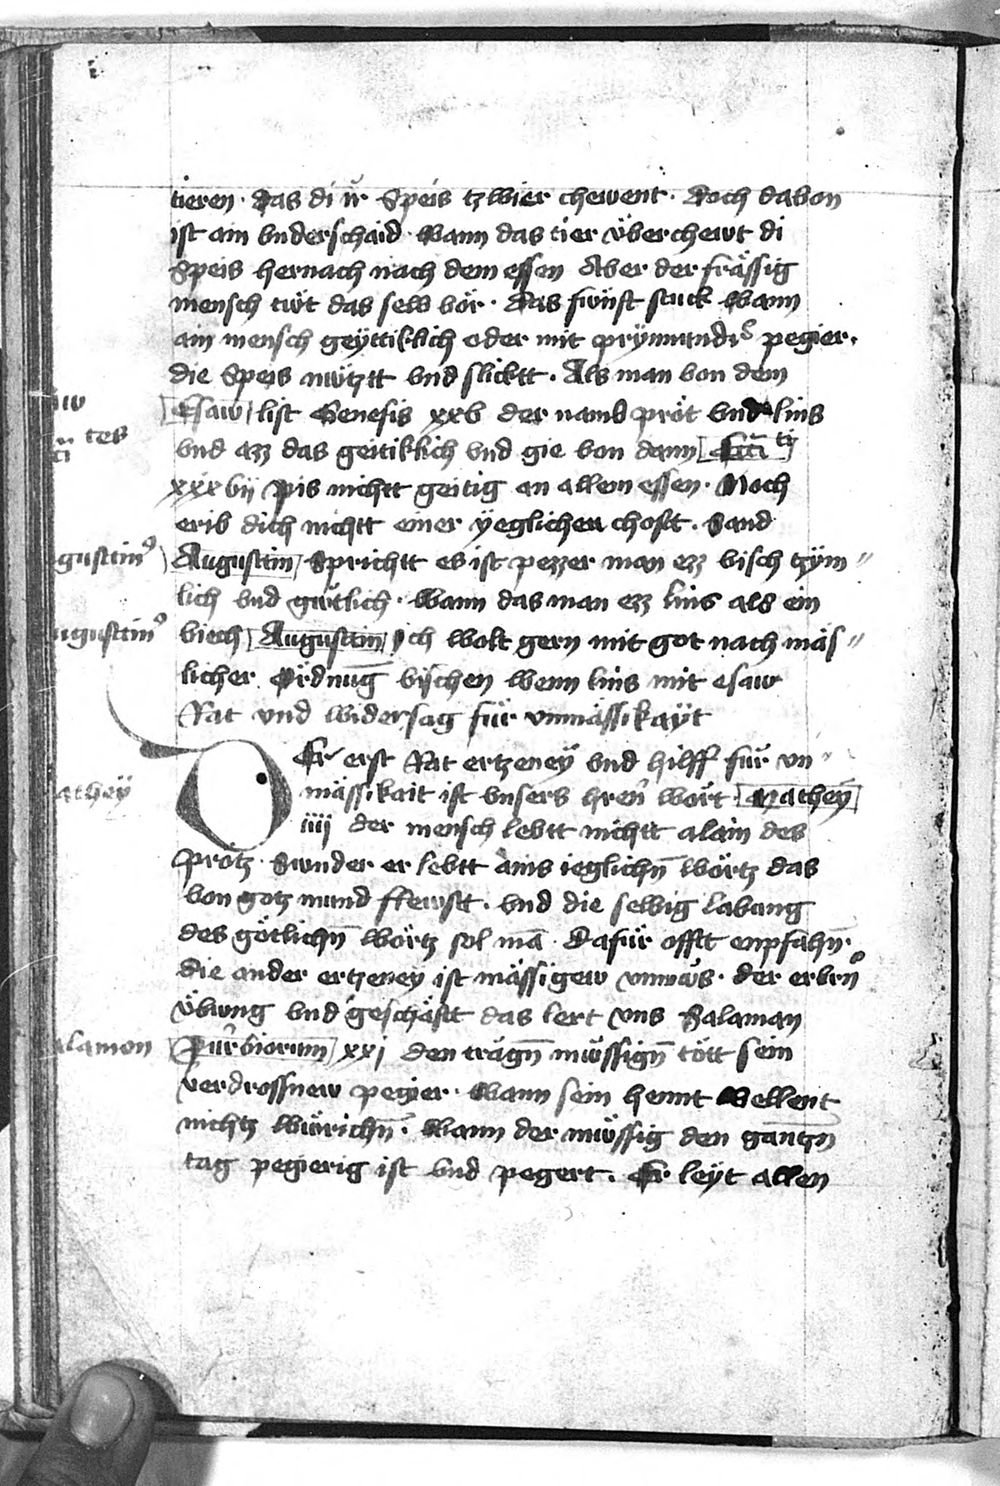 tieren · Das di ir Speis tzwier chewent · Doch davon
ist ain vnderschaid · Wann das tier v̈berchewt di
Speis hernach nach dem essen Aber der frässig
mensch twt das selb vör · Das fwnft stuck Wann
ain mensch geyttiklich oder mit prynnunder pegier ·
die Speis nützt vnd slicktt · Als man von dem
Esaw list Genesis xxv der namb pröt vnd lins
vnd azz das geitiklich vnd gie von dann Ecci
xxxvij Pis nichtt geitig an allem essen · Noch
erib dich nichtt einer ÿeglichen chostt · Sand
gusttin⁹ Augusttin Sprichtt es ist pezzer man ezz visch tzÿm〃
lich vnd gütlich · Wann das man ezz lins als ein
ugusttin⁹ viech Augusttin Ich wolt gern mit got nach mäs〃
licher Ördnu̅g vÿschen wenn lins mit esaw
Rat vnd widersag für vnmässikaÿt
DEr erst Rat ertzeneÿ vnd hilff für vn〃
atheÿ mässikait ist vnsers hren̄ wort · Matheÿ
iiij der mensch lebtt nichtt alain des
protz · Sunder er lebtt ains ieglichn̄ wörtz das
von gotz mund flewstt · vnd die selbig labang
des götlichn̄ wörtz sol ma̅ · Dafür offtt enpfahn̄ ·
die ander ertzeney ist mässigew vnmüs · der erbrn̄
v̈bung vnd geschäftt das lert vns Salaman
alamon Puerbiorum xxj den trägn̄ müssign̄ tött sein
verdrossnew pegier · Wann sein hennt wellent
nichtz würichn̄ · Wann der müssig den gantzn̄
tag pegierig ist vnd pegert · Er leÿt allen